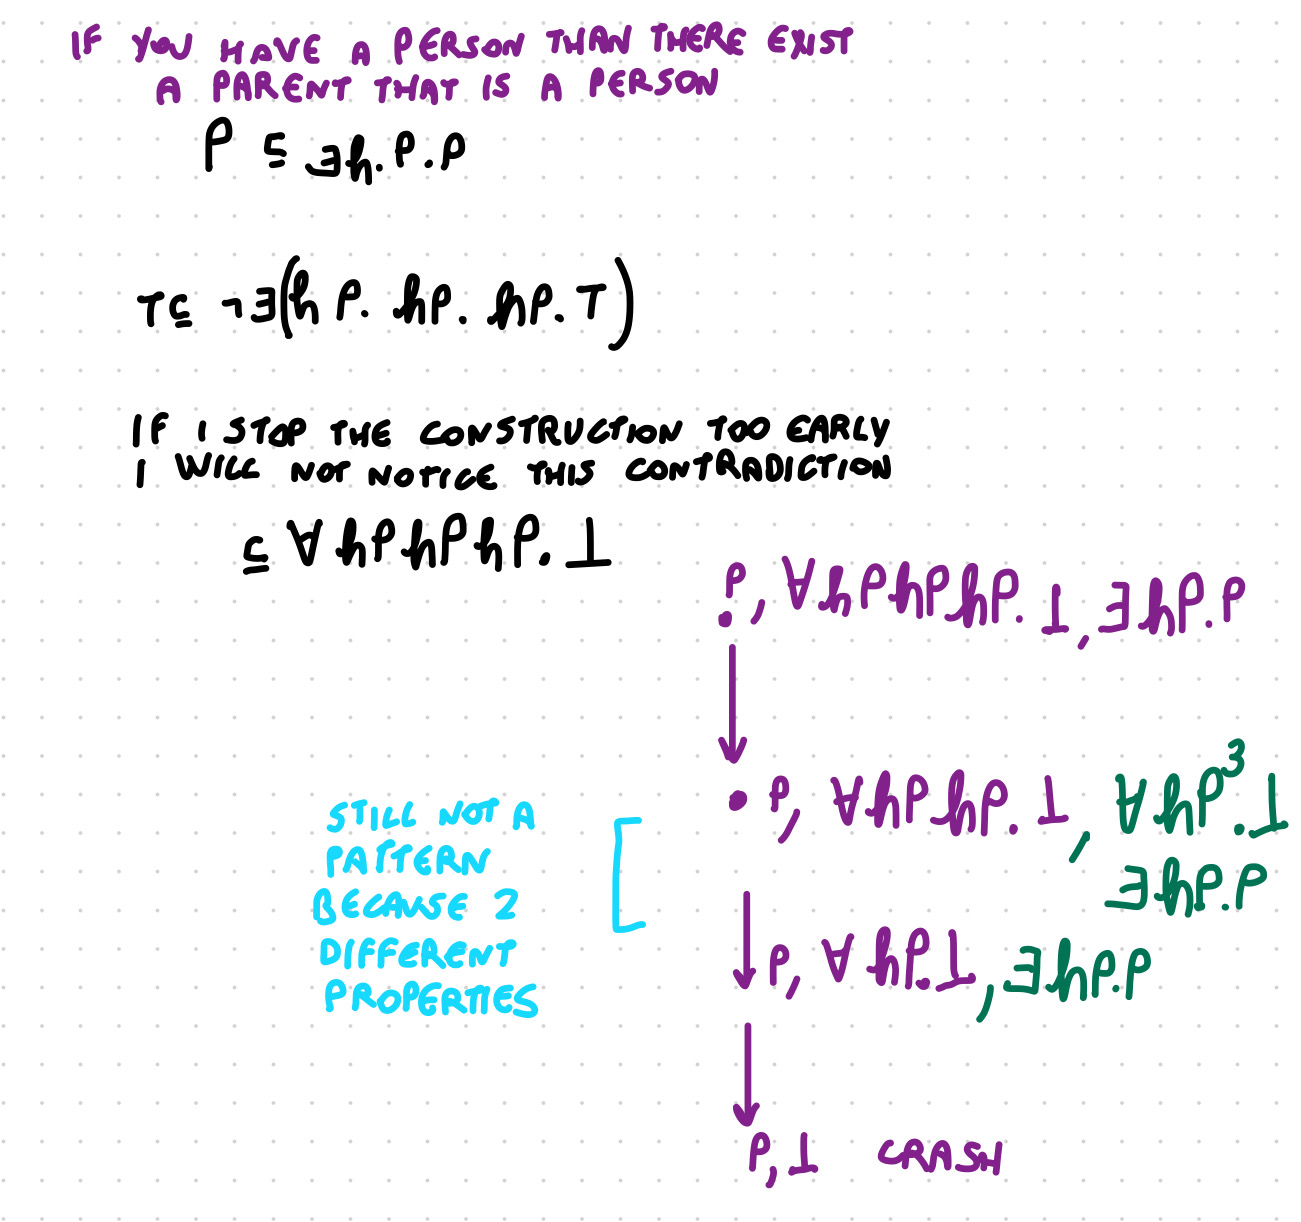 IF YOU HAVE A PERSON THAN THERE EXIST
A PARENT THAT IS A PERSON
P ⊆ ∃h.P.P
T ⊆ ¬∃(hP. hP. hP. T)
IF I STOP THE CONSTRUCTION TOO EARLY
I WILL NOT NOTICE THIS CONTRADICTION
⊆ ∀hPhPhP.⊥
P, ∀hPhPhP.⊥, ∃hP.P
P, ∀hPhP.⊥, ∀hP³.⊥
∃hP.P
STILL NOT A
PATTERN
BECAUSE 2
DIFFERENT
PROPERTIES
P, ∀hP.⊥, ∃hP.P
P, ⊥ CRASH